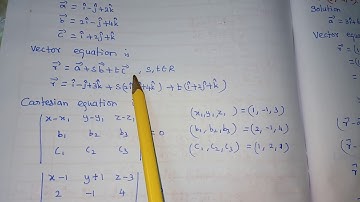 a⃗ = î-ĵ+3k̂
b⃗ = 2î-ĵ+4k̂
c⃗ = î+2ĵ+k̂
Vector equation is
r⃗ = a⃗ + sb⃗ + tc⃗ , s,t∈R
r⃗ = î-ĵ+3k̂ + s(2î +4k̂) + t(î+2ĵ+k̂)
Cartesian equation
| x-x₁ y-y₁ z-z₁ |
| b₁ b₂ b₃ | = 0
| c₁ c₂ c₃ |
(x₁, y₁, z₁) = (1,-1,3)
(b₁, b₂, b₃) = (2,-1,4)
(c₁, c₂, c₃) = (1,2,1)
| x-1 y+1 z-3 |
| 2 -1 4 |
Solution